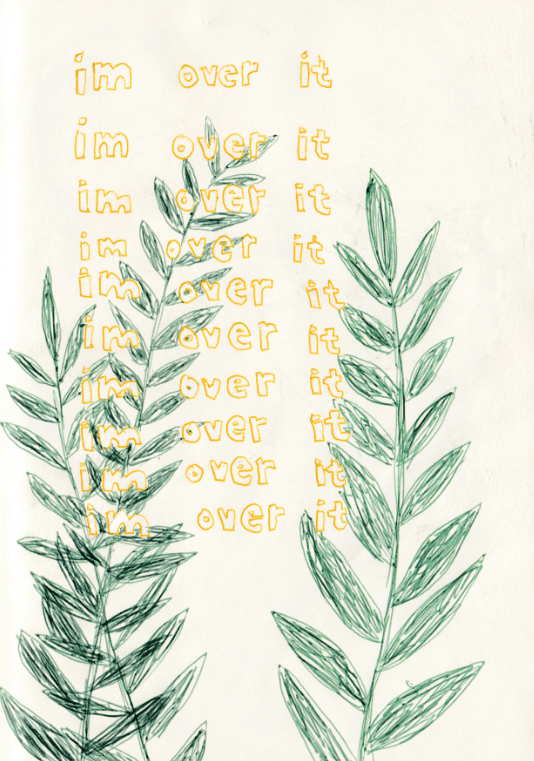 im over it
im over it
im over it
im over it
im over it
im over it
im over it
im over it
im over it
im over it